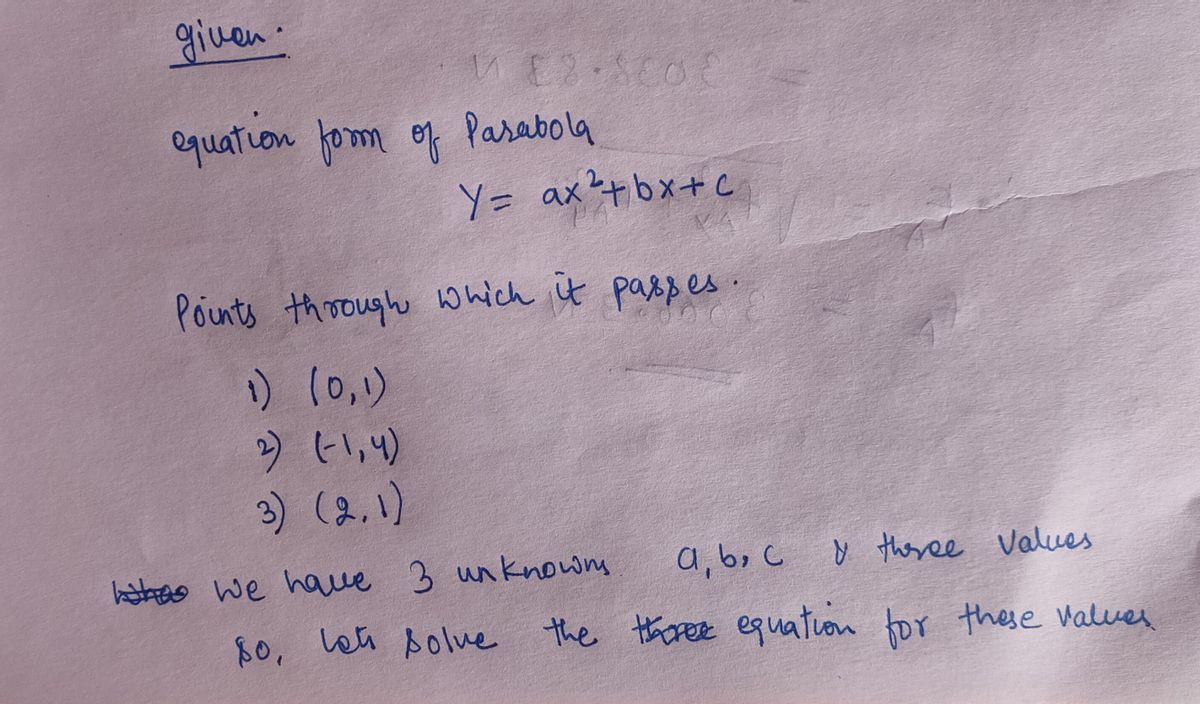 given.
equation form of Parabola
Y = ax²+bx+c
Points through which it passes.
1) (0,1)
2) (-1,4)
3) (2,1)
We have 3 unknowns a, b, c & three values
So, lets solve the three equation for these values.